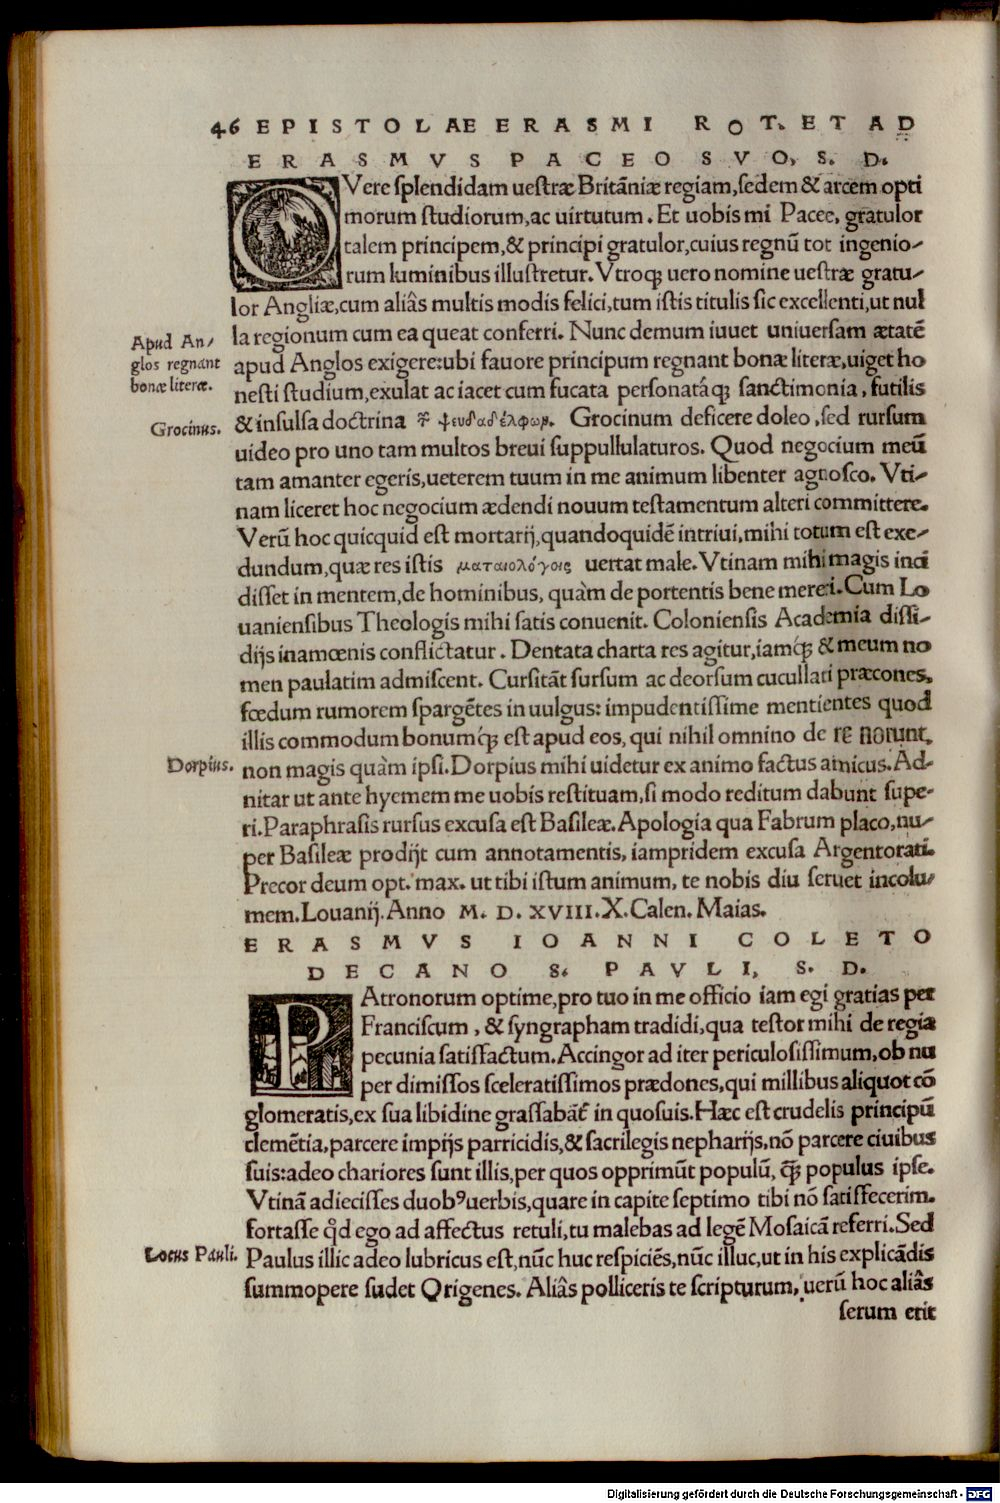 46 EPISTOLAE ERASMI ROT. ET AD
ERASMVS PACEO SVO, S. D.
O Vere splendidam uestræ Britãniæ regiam, sedem & arcem opti
morum studiorum, ac uirtutum. Et uobis mi Pacee, gratulor
talem principem, & principi gratulor, cuius regnũ tot ingenio-
rum luminibus illustretur. Vtroq; uero nomine uestræ gratu-
lor Angliæ, cum aliâs multis modis felici, tum istis titulis sic excellenti, ut nul
la regionum cum ea queat conferri. Nunc demum iuuet uniuersam ætatẽ
Apud An-
glos regnant
bonæ literæ.
apud Anglos exigere: ubi fauore principum regnant bonæ literæ, uiget ho
nesti studium, exulat ac iacet cum fucata personatáq; sanctimonia, futilis
Grocinus.
& insulsa doctrina τῶν ψευδαδέλφων. Grocinum deficere doleo, sed rursum
uideo pro uno tam multos breui suppullulaturos. Quod negocium meũ
tam amanter egeris, ueterem tuum in me animum libenter agnosco. Vti-
nam liceret hoc negocium ædendi nouum testamentum alteri committere.
Verũ hoc quicquid est mortarij, quandoquidẽ intriui, mihi totum est exe-
dundum, quæ res istis ματαιολόγοις uertat male. Vtinam mihi magis inci
disset in mentem, de hominibus, quàm de portentis bene mereri. Cum Lo
uaniensibus Theologis mihi satis conuenit. Coloniensis Academia dissi-
dijs inamœnis conflictatur. Dentata charta res agitur, iamq́; & meum no
men paulatim admiscent. Cursitãt sursum ac deorsum cucullati præcones,
fœdum rumorem spargẽtes in uulgus: impudentissime mentientes quod
illis commodum bonumq́; est apud eos, qui nihil omnino de re norunt,
Dorpius.
non magis quàm ipsi. Dorpius mihi uidetur ex animo factus amicus. Ad-
nitar ut ante hyemem me uobis restituam, si modo reditum dabunt supe-
ri. Paraphrasis rursus excusa est Basileæ. Apologia qua Fabrum placo, nu-
per Basileæ prodijt cum annotamentis, iampridem excusa Argentorati.
Precor deum opt. max. ut tibi istum animum, te nobis diu seruet incolu-
mem. Louanij. Anno M. D. XVIII. X. Calen. Maias.
ERASMVS IOANNI COLETO
DECANO S. PAVLI, S. D.
PAtronorum optime, pro tuo in me officio iam egi gratias per
Franciscum, & syngrapham tradidi, qua testor mihi de regia
pecunia satisfactum. Accingor ad iter periculosissimum, ob nu
per dimissos sceleratissimos prædones, qui millibus aliquot cõ
glomeratis, ex sua libidine grassabãt̃ in quosuis. Hæc est crudelis principũ
clemẽtia, parcere impijs parricidis, & sacrilegis nepharijs, nõ parcere ciuibus
suis: adeo chariores sunt illis, per quos opprimũt populũ, q̃; populus ipse.
Vtinã adiecisses duobꝰ uerbis, quare in capite septimo tibi nõ satisfecerim.
fortasse qd̓ ego ad affectus retuli, tu malebas ad legẽ Mosaicã referri. Sed
Locus Pauli.
Paulus illic adeo lubricus est, nũc huc respiciẽs, nũc illuc, ut in his explicãdis
summopere sudet Origenes. Aliâs polliceris te scripturum, uerũ hoc aliâs
serum erit
Digitalisierung gefördert durch die Deutsche Forschungsgemeinschaft - DFG